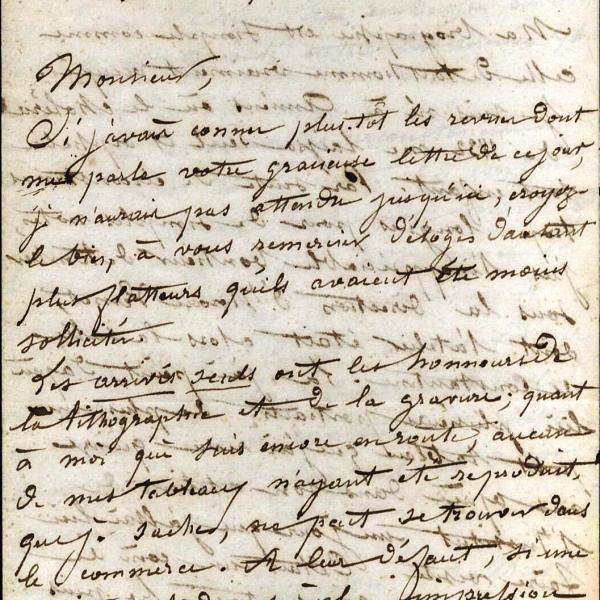 Monsieur,
Si j'avais connu plus tôt les revues dont
me parle votre gracieuse lettre de ce jour,
je n'aurais pas attendu jusqu'ici, croyez
le bien, à vous remercier d'éloges d'autant
plus flatteurs qu'ils avaient été moins
sollicités.
Les arrivés seuls ont les honneurs de
la lithographie et de la gravure; quant
à moi qui suis encore en route, aucun
de mes tableaux n'ayant été reproduit,
que je saches, ne peut se trouver dans
le commerce. A leur défaut, si une
impression